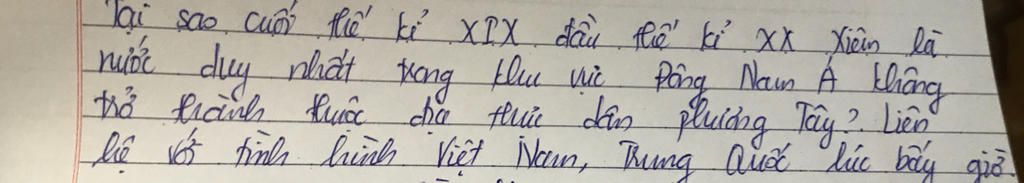 Tại sao cuối thế kỉ XIX đầu thế kỉ XX Xiêm là
nước duy nhất trong khu vực Đông Nam Á không
trở thành thuộc địa thực dân phương Tây? Liên
hệ với tình hình Việt Nam, Trung Quốc lúc bấy giờ.